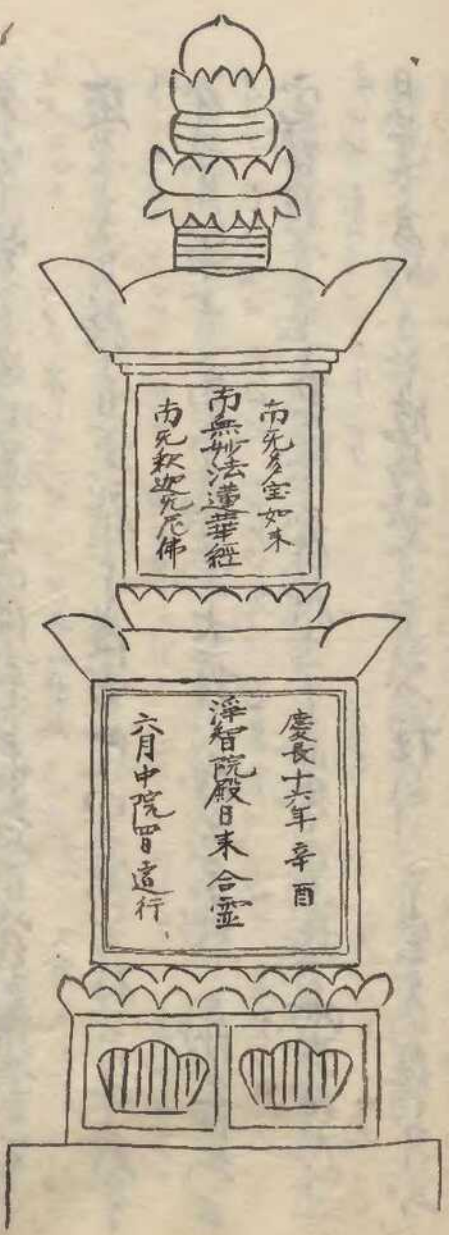 南无多宝如来
南無妙法蓮華經
南无釈迦牟尼佛
慶長十六年 辛酉
淨智院殿日来合霊
六月中院四日遠行